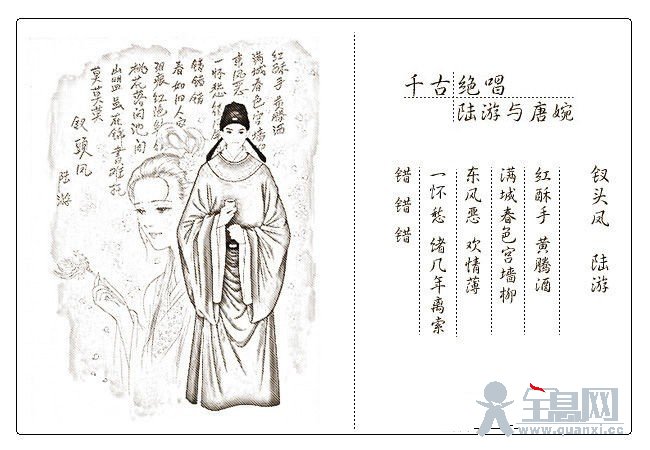 红酥手 黄腾酒
满城春色宫墙
东风恶
一怀愁
错错错
春如旧人空
桃花落闲池阁
山盟虽在锦书难托
莫莫莫
钗頭凤
陆游
千古绝唱
陆游与唐婉
钗头凤 陆游
红酥手 黄腾酒
满城春色宫墙柳
东风恶 欢情薄
一怀愁 绪几年离索
错错错
全息网
www.quanxi.cc